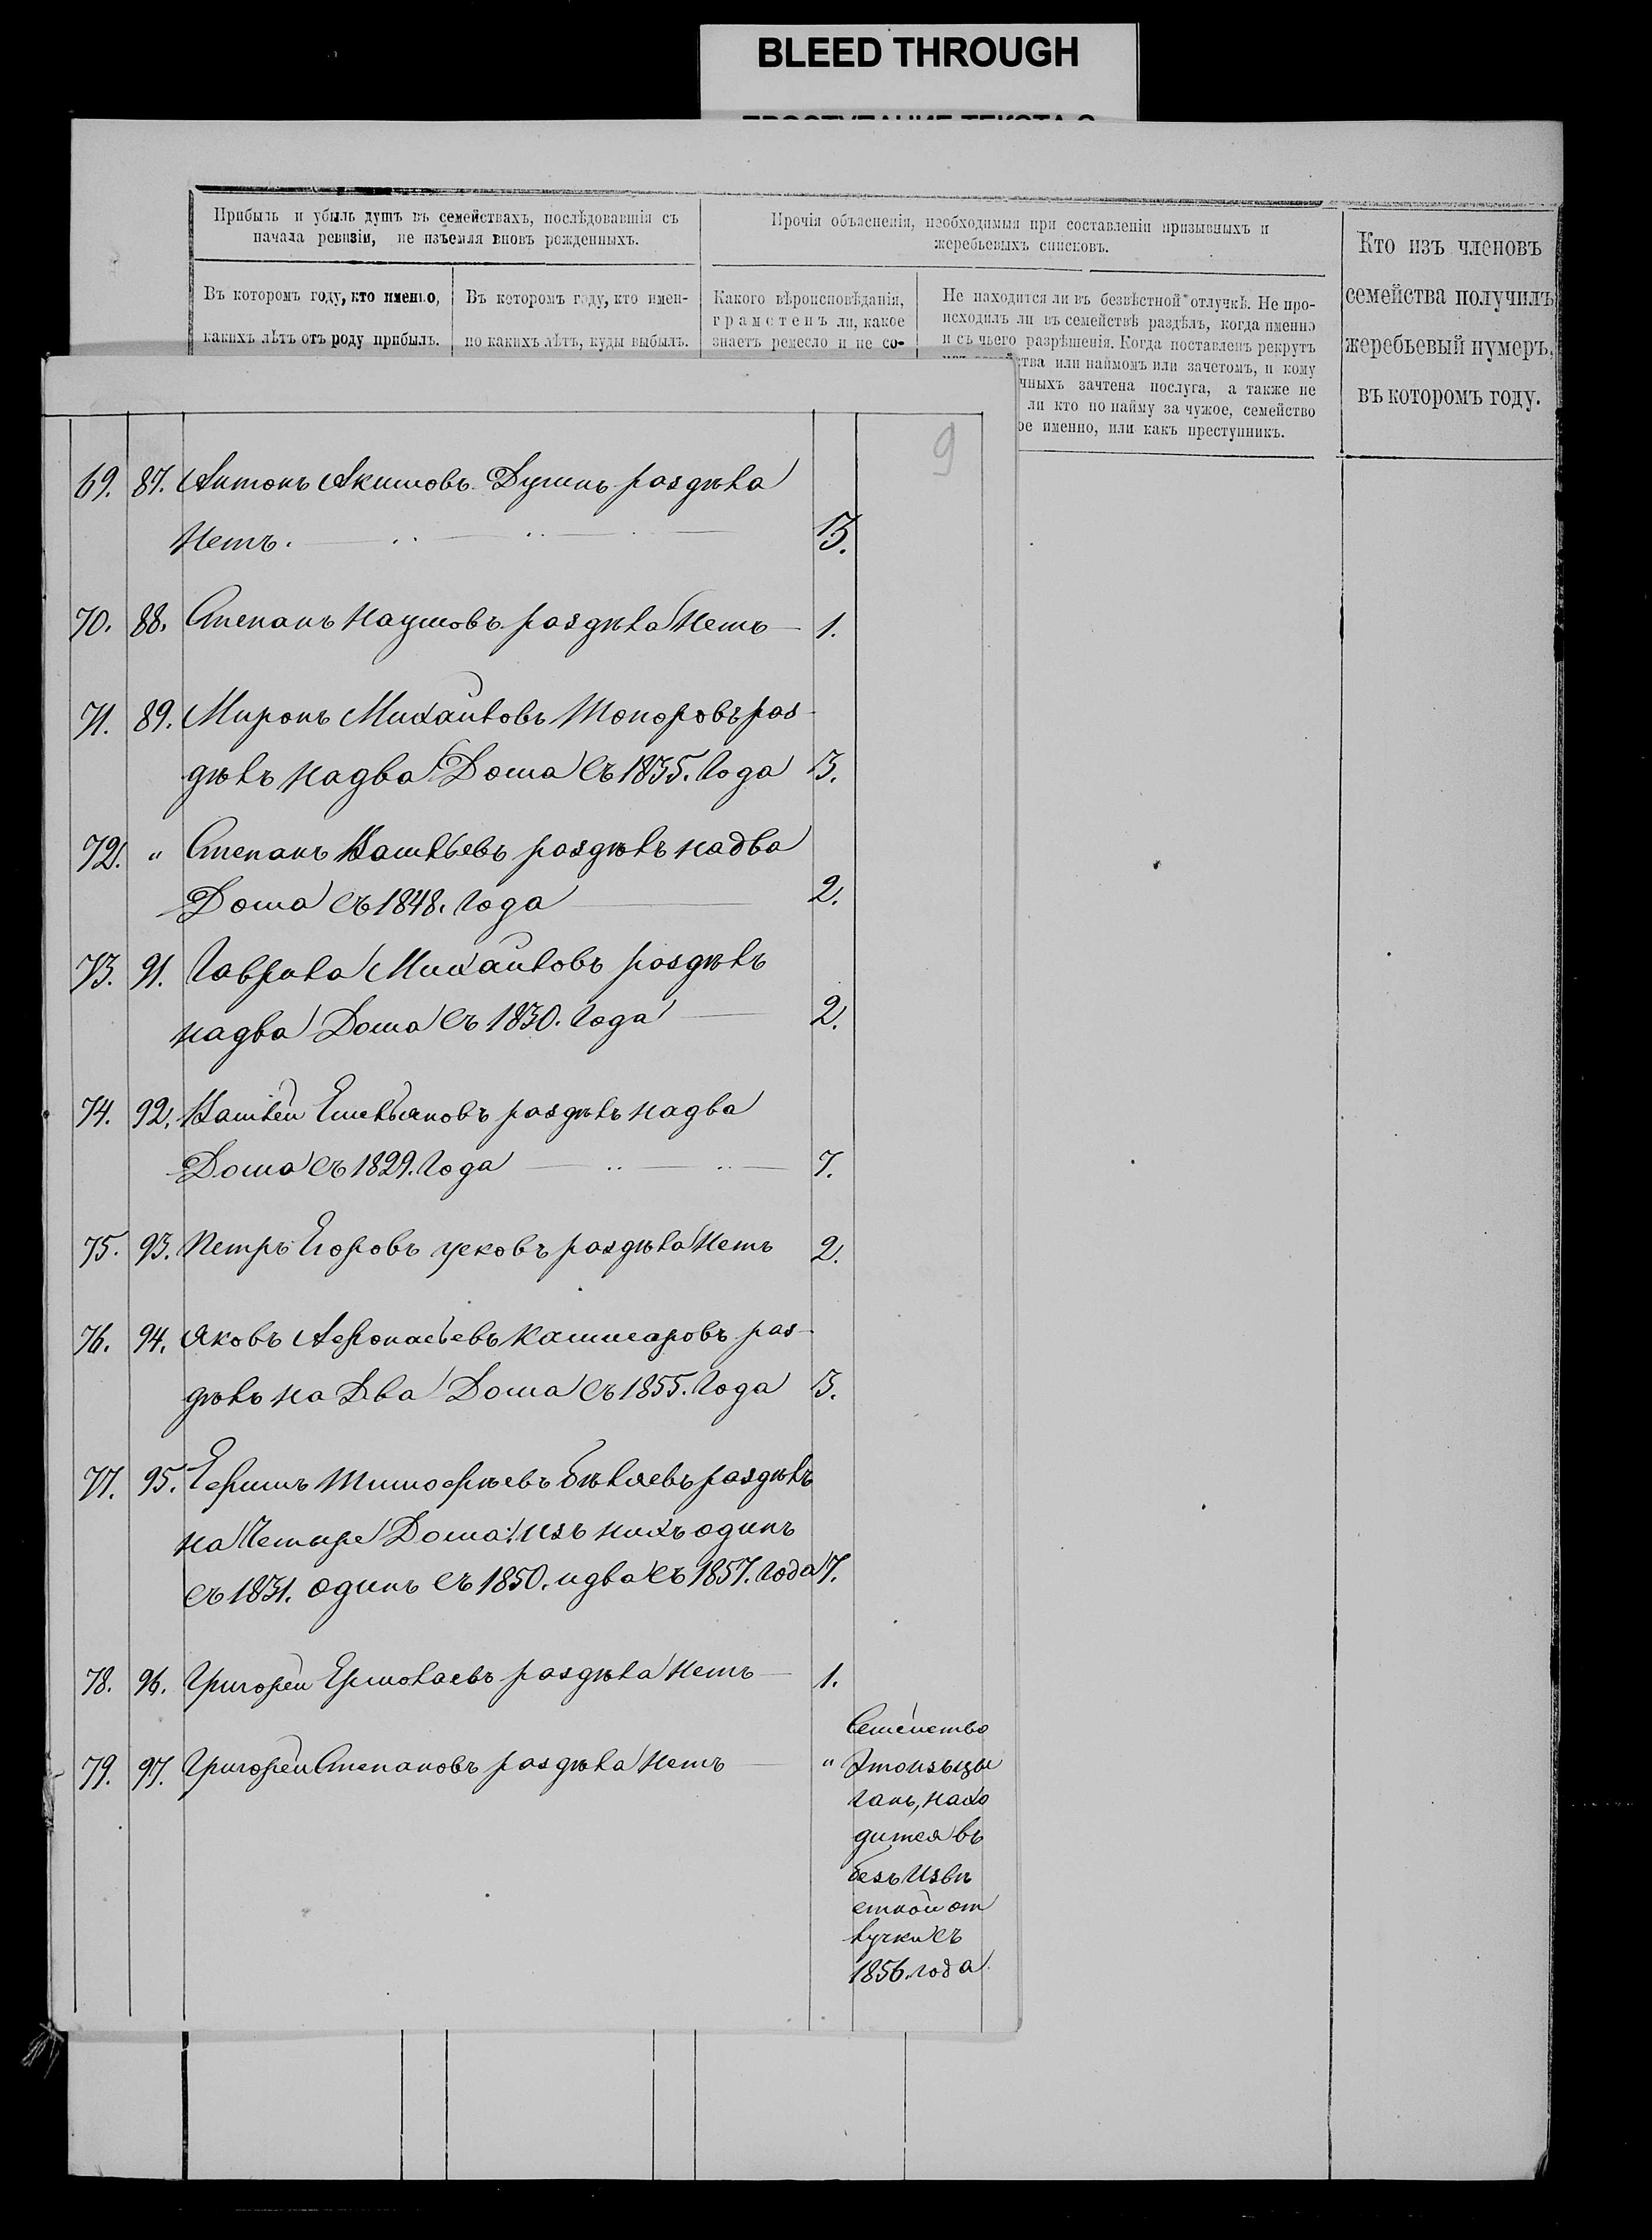 BLEED THROUGH
Прибыль и убыль душъ въ семействахъ, послѣдовавшія съ
начала ревизіи, не изъемля вновь рожденныхъ.
Прочія объясненія, необходимыя при составленіи призывныхъ и
жеребьевыхъ списковъ.
Кто изъ членовъ
семейства получилъ
жеребьевый нумеръ,
въ которомъ году.
Въ которомъ году, кто именно,
какихъ лѣтъ отъ роду прибылъ.
Въ которомъ году, кто имен-
но какихъ лѣтъ, куды выбылъ.
Какого вѣроисповѣданія,
грамотенъ ли, какое
знаетъ ремесло и не со-
Не находится ли въ безвѣстной отлучкѣ. Не про-
исходилъ ли въ семействѣ раздѣлъ, когда именно
и съ чьего разрѣшенія. Когда поставленъ рекрутъ
ства или наймомъ или зачетомъ, и кому
чныхъ зачтена послуга, а также не
ли кто по найму за чужое, семейство
ое именно, или какъ преступникъ.
9
69. 87. Антонъ Акимовъ Думинъ раздѣла
Нетъ. 3.
70. 88. Степанъ Наумовъ раздѣла Нетъ 1.
71. 89. Миронъ Михайловъ Топоровъ раз-
дѣлъ надва Дома съ 1835. Года 3.
72. " Степанъ Матвѣевъ раздѣлъ надва
Дома съ 1848. Года 2.
73. 91. Гаврила Михайловъ раздѣлъ
надва Дома съ 1830. Года 2.
74. 92. Емельяновъ раздѣлъ надва
Дома съ 1829. Года 7.
75. 93. Петръ Егоровъ усковъ раздѣла Нетъ 2.
76. 94. Яковъ Афонасьевъ Кашкаровъ раз-
дѣлъ на Два Дома съ 1855. Года 3.
77. 95. Ефимъ Тимофѣевъ бѣляевъ раздѣлъ
на Четыре Дома: изъ нихъ одинъ
съ 1831. одинъ съ 1850. идва съ 1857. Года 7.
78. 96. Григорей Ермолаевъ раздѣла Нетъ 1.
79. 97. Григорей Степановъ раздѣла Нетъ "
Семейство
Это изъ цы
ганъ, нахо
дится въ
безъ Извѣ
стной от
лучки съ
1856. года